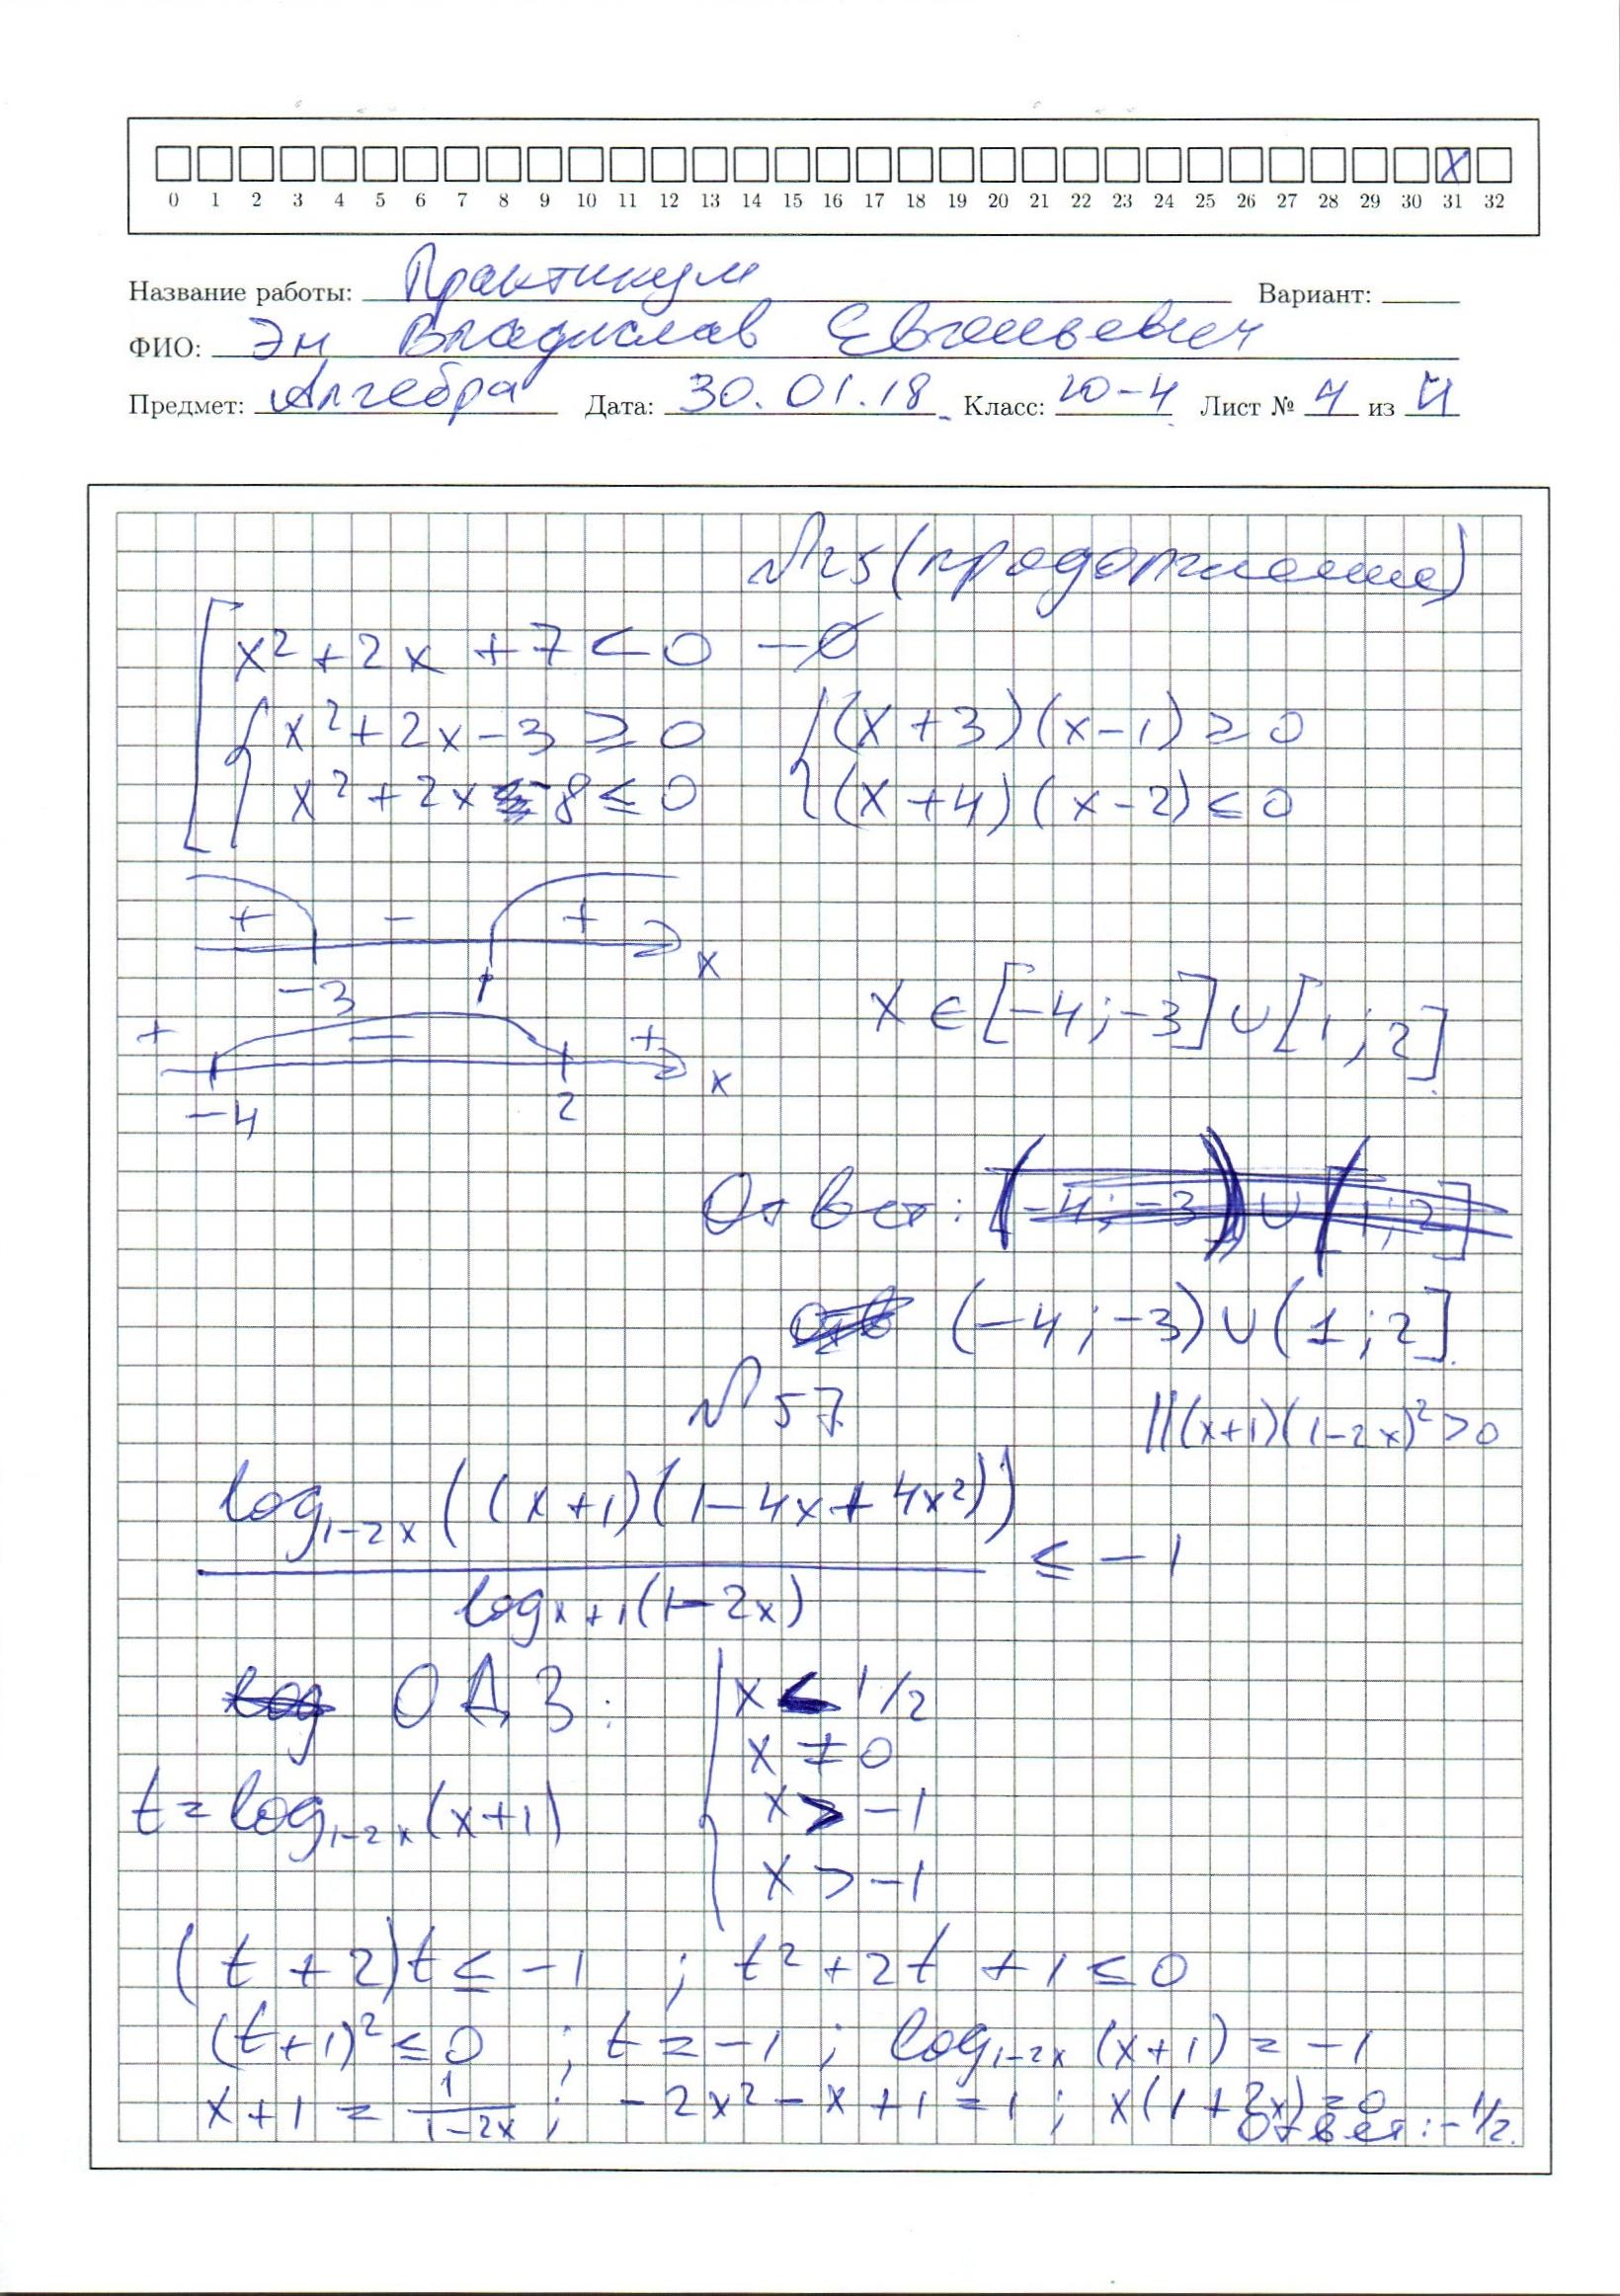 0 1 2 3 4 5 6 7 8 9 10 11 12 13 14 15 16 17 18 19 20 21 22 23 24 25 26 27 28 29 30 31 32
Название работы: Практикум Вариант:
ФИО: Эн Владислав Евгеньевич
Предмет: Алгебра Дата: 30.01.18 Класс: 10-4 Лист № 4 из 4
№25 (продолжение)
x² + 2x + 7 < 0 – ∅
x² + 2x - 3 ≥ 0 (x + 3)(x - 1) ≥ 0
x² + 2x - 8 ≤ 0 (x + 4)(x - 2) ≤ 0
+ – + x
-3 1
x ∈ [-4; -3] ∪ [1; 2]
+ – + x
-4 2
Ответ: [-4; -3) ∪ [1; 2]
(-4; -3) ∪ (1; 2].
№ 57
||(x+1)(1-2x)² > 0
log₁₋₂ₓ((x+1)(1-4x+4x²))
≤ -1
logₓ₊₁(1-2x)
ОДЗ: x < 1/2
x ≠ 0
t = log₁₋₂ₓ(x+1) x > -1
x > -1
(t + 2)t ≤ -1 ; t² + 2t + 1 ≤ 0
(t+1)² ≤ 0 ; t = -1 ; log₁₋₂ₓ (x+1) = -1
x + 1 = 1/(1-2x) ; -2x² - x + 1 = 1 ; x(1+2x) = 0
Ответ: -1/2.